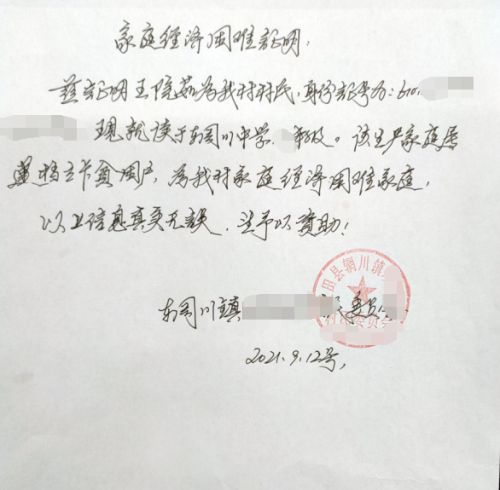 家庭经济困难证明.
兹证明王院茹为我村村民,身份证号为:610.
现就读于东同川中学 年级。该生严家庭属
建档立卡贫困户,为我村家庭经济困难家庭,
以上信息真实无误,望予以资助!
东同川镇 民委员会
田县铜川镇
2021.9.12号,